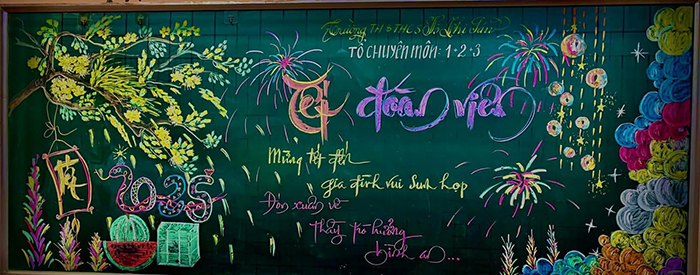 Trường TH&THCS Võ Thị Sáu
TỔ CHUYÊN MÔN: 1+2+3
Tết đoàn viên
Mừng tết đến
gia đình vui sum họp
Đón xuân về
thầy trò hưởng
bình an...
2025